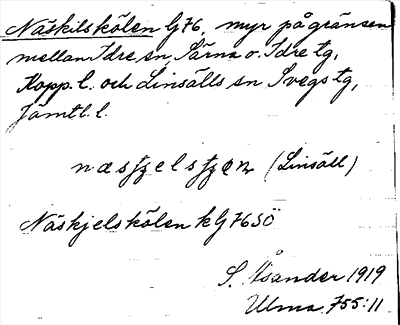 Näskilskölen G76, myr på gränsen
mellan Idre sn, Särna o. Idre tg,
Kopp. l. och Linsälls sn Svegs tg,
Jämtl. l.
(Linsäll)
Näskjelskölen k G76SÖ
S. Åsander 1919
Ulma 755:11